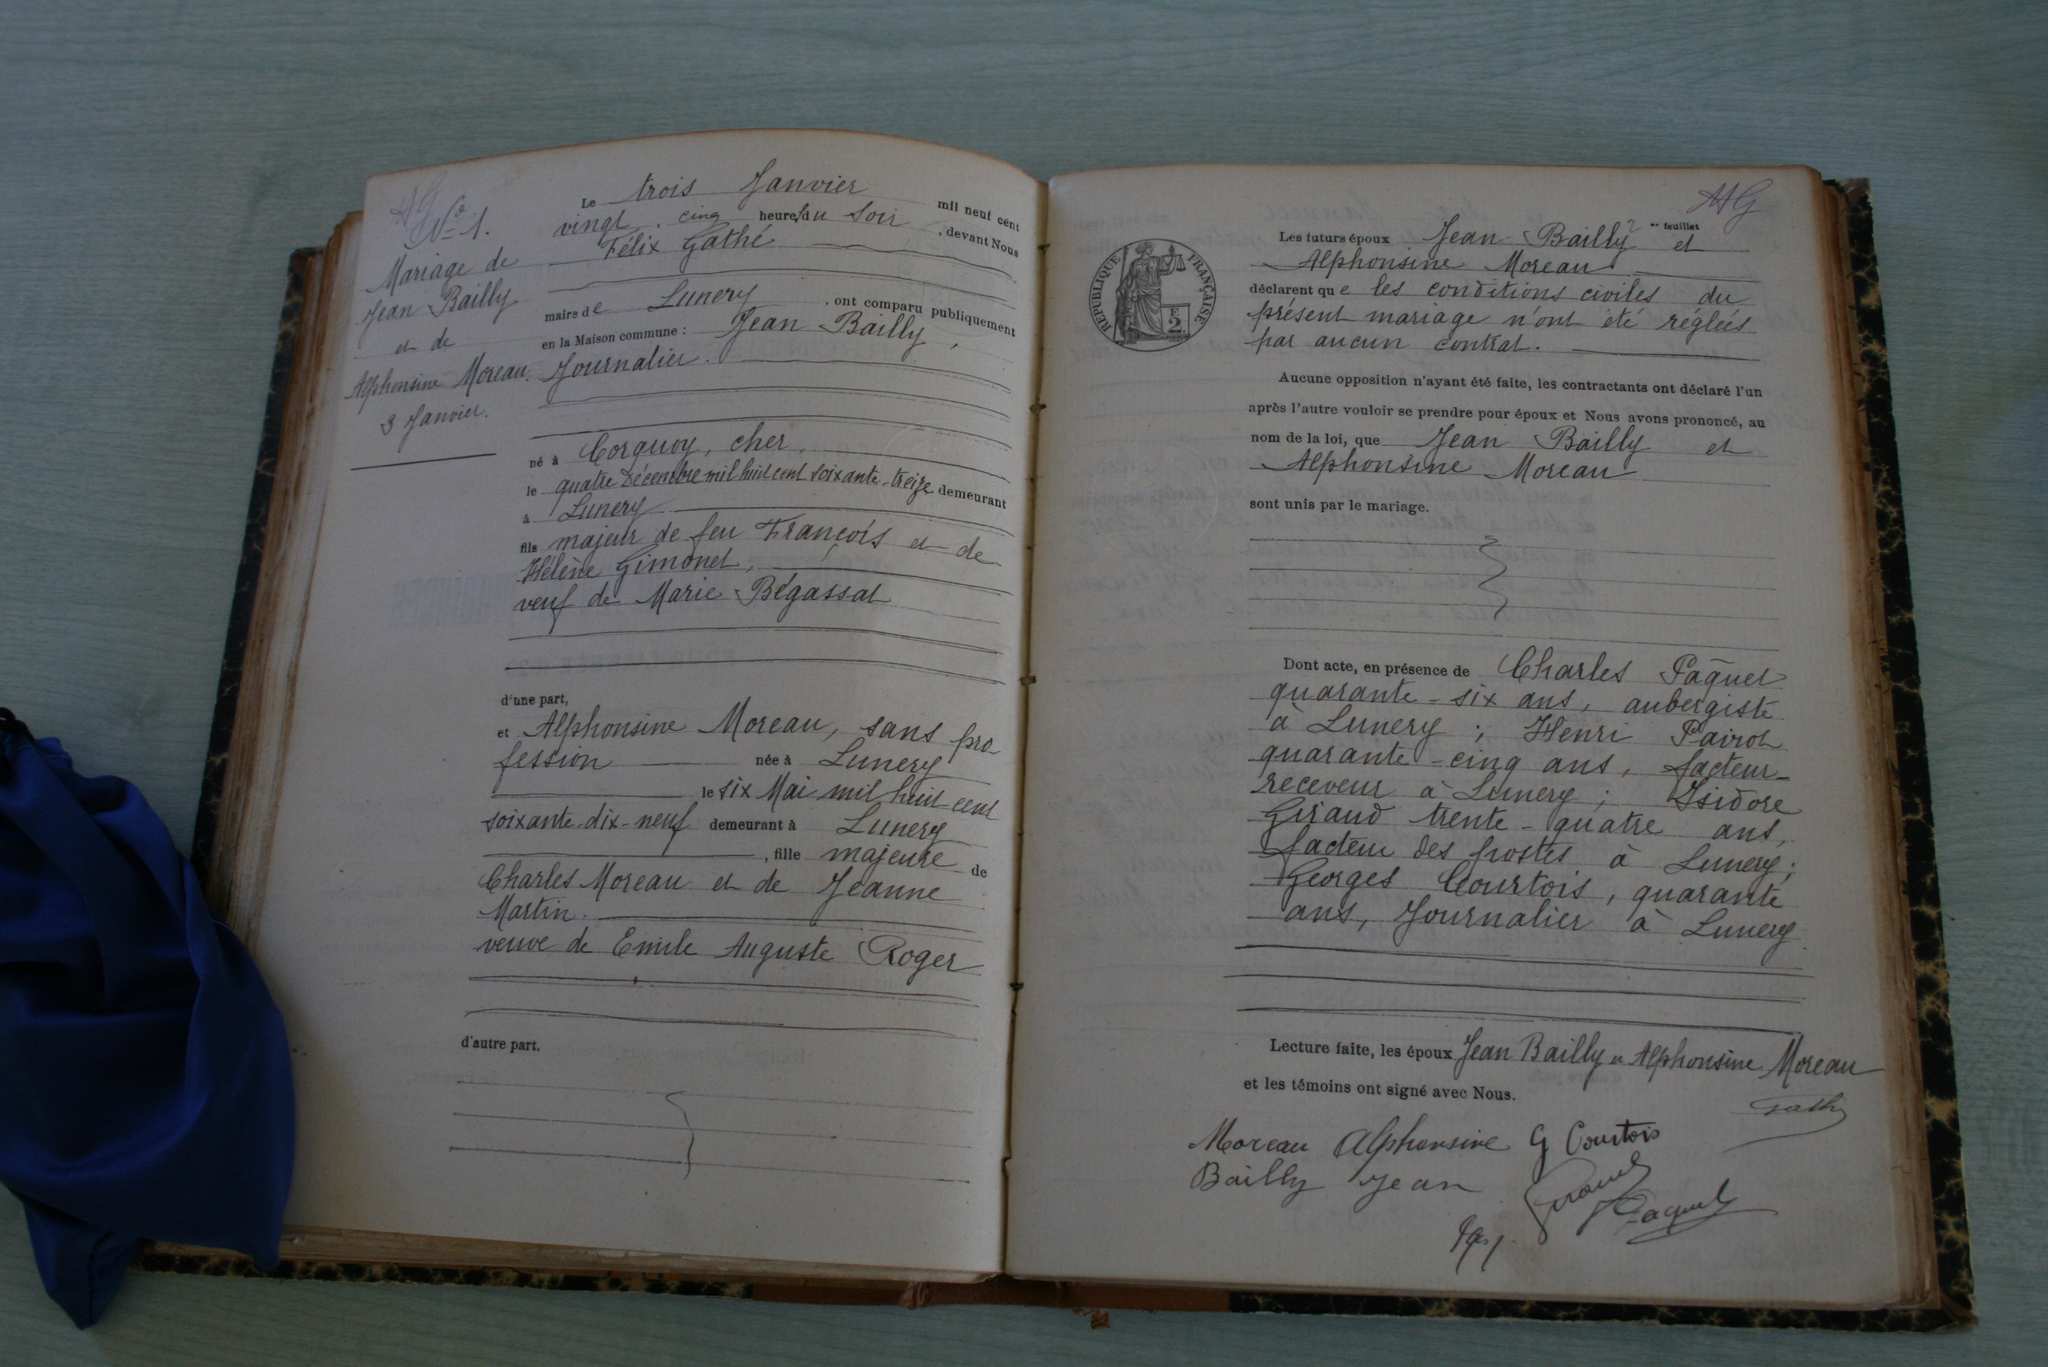 Nº 1.
Mariage de
Jean Bailly
et de
Alphonsine Moreau.
3 Janvier.
Le trois Janvier mil neuf cent
vingt cinq heures du soir, devant Nous
Félix Gathé
maire de Lunery, ont comparu publiquement
en la Maison commune : Jean Bailly,
Journalier.
né à Corquoy, cher,
le quatre Décembre mil huit cent soixante-treize demeurant
à Lunery
fils majeur de feu François et de
Hélène Gimonet,
veuf de Marie Bégassat
d'une part,
et Alphonsine Moreau, sans pro
fession née à Lunery
le six Mai mil huit cent
soixante-dix-neuf demeurant à Lunery
, fille majeure de
Charles Moreau et de Jeanne
Martin.
veuve de Emile Auguste Roger
d'autre part.
AG
2 me feuillet
RÉPUBLIQUE FRANÇAISE
2
Les futurs époux Jean Bailly et
Alphonsine Moreau
déclarent que les conditions civiles du
présent mariage n'ont été réglées
par aucun contrat.
Aucune opposition n'ayant été faite, les contractants ont déclaré l'un
après l'autre vouloir se prendre pour époux et Nous avons prononcé, au
nom de la loi, que Jean Bailly et
Alphonsine Moreau
sont unis par le mariage.
Dont acte, en présence de Charles Paquet
quarante-six ans, aubergiste
à Lunery ; Henri Pairot
quarante-cinq ans, facteur-
receveur à Lunery ; Isidore
Giraud trente-quatre ans,
facteur des postes à Lunery ;
Georges Courtois, quarante
ans, Journalier à Lunery.
Lecture faite, les époux Jean Bailly et Alphonsine Moreau
et les témoins ont signé avec Nous.
Gathé
Moreau Alphonsine G Courtois
Bailly Jean Giraud
Paquet